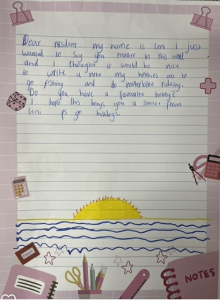 Dear resident my name is Leni I just
wanted to say you matter in this world
and I thought it would be nice
to write u a note my hobbies are to
go fishing and do motorbike riding.
Do you have a favourite hobby?
I hope this brings you a smile from
Leni ps go
NOTES